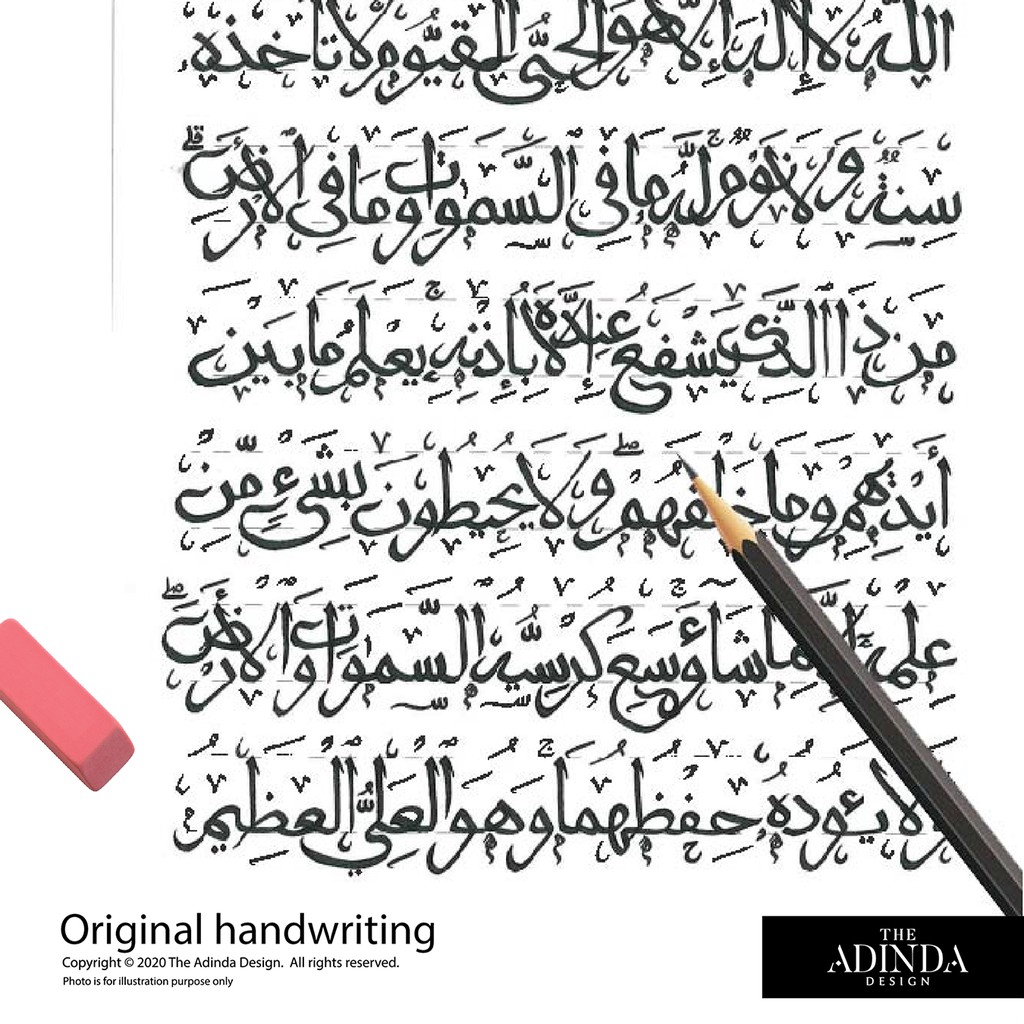 اللّٰهُ لَا إِلٰهَ إِلَّا هُوَ الْحَيُّ الْقَيُّومُ لَا تَأْخُذُهُ
سِنَةٌ وَلَا نَوْمٌ لَهُ مَا فِي السَّمٰوَاتِ وَمَا فِي الْأَرْضِ ۗ
مَنْ ذَا الَّذِي يَشْفَعُ عِنْدَهُ إِلَّا بِإِذْنِهِ يَعْلَمُ مَا بَيْنَ
أَيْدِيهِمْ وَمَا خَلْفَهُمْ ۖ وَلَا يُحِيطُونَ بِشَيْءٍ مِّنْ
عِلْمِهِ بِمَا شَاءَ وَسِعَ كُرْسِيُّهُ السَّمٰوَاتِ وَالْأَرْضَ ۖ
وَلَا يَئُودُهُ حِفْظُهُمَا وَهُوَ الْعَلِيُّ الْعَظِيمُ
Original handwriting
Copyright © 2020 The Adinda Design. All rights reserved.
Photo is for illustration purpose only
THE
ADINDA
DESIGN